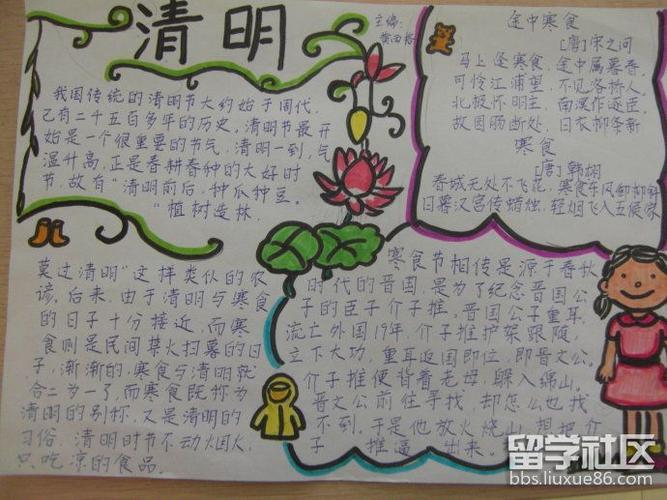 清明
主编:
我国传统的清明节大约始于周代,
已有二十五百多年的历史。清明节最开
始是一个很重要的节气,清明一到,气
温升高,正是春耕春种的大好时
节,故有"清明前后,种瓜种豆。
"植树造林,
莫过清明"这样类似的农
谚。后来,由于清明与寒食
的日子十分接近,而寒
食则是民间禁火扫墓的日
子,渐渐的,寒食与清明就
合二为一了,而寒食既称为
清明的别称,又是清明的
习俗。清明时节不动烟火,
只吃凉的食品。
途中寒食
[唐]宋之问
马上逢寒食,途中属暮春
可怜江浦望,不见洛桥人,
北极怀明主,南溟作逐臣,
故园肠断处,日衣柳条新
寒食
[唐]韩翃
春城无处不飞花,寒食东风御柳斜
日暮汉宫传蜡烛,轻烟飞入五侯家
寒食节相传是源于春秋
时代的晋国,是为了纪念晋国公
子的臣子介子推,晋国公子重耳,
流亡外国19年,介子推护驾跟随,
立下大功,重耳返国即位,即晋文公,
介子推便背着老母,躲入绵山。
晋文公前往寻找,却怎么也找
不到,于是他放火烧山,想把介
子推逼出来。
留学社区
bbs.liuxue86.com